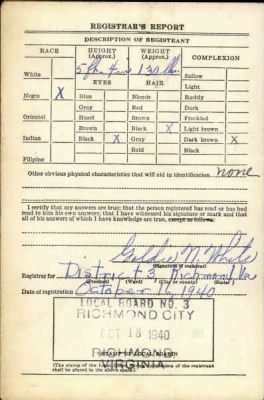 REGISTRAR'S REPORT
DESCRIPTION OF REGISTRANT
RACE HEIGHT (Approx.) WEIGHT (Approx.) COMPLEXION
White 5 ft 130 Sallow
EYES HAIR Light
Negro X Blue Blonde Ruddy
Gray Red Dark
Oriental Hazel Brown Freckled
Brown Black X Light brown
Indian Black X Gray Dark brown X
Bald Black
Filipino
Other obvious physical characteristics that will aid in identification none
I certify that my answers are true; that the person registered has read or has had
read to him his own answers; that I have witnessed his signature or mark and that
all of his answers of which I have knowledge are true, except as follows:
Goldie N. White
(Signature of registrar)
Registrar for District 3, Richmond Va
(Precinct) (Ward) (City or county) (State)
Date of registration October 16, 1940
LOCAL BOARD NO. 3
RICHMOND CITY
OCT 18 1940
RICHMOND
VIRGINIA
(The stamp of the Local Board
shall be placed in the above space.)